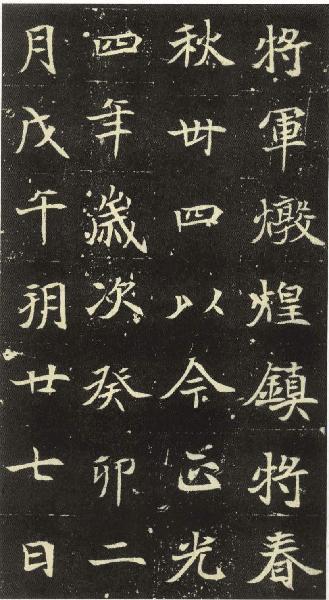 將軍燉煌鎮將春
秋卅四以今正光
四年歲次癸卯二
月戊午朔廿七日